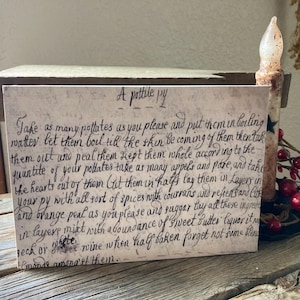 A pottate py
Take as many pottates as you please and put them in boiling
watter let them boil till the skin be coming of them then tak
them out and peal them keept them whole according to the
quantite of your pottates take as many appels and pare and take
the hearts out of them Cut them in halfs lay them in Layers of
your py with all sort of spices with courrans and resiens and Citron
and orange peal as you please and sugger they all there ingredients
in layers mixt with abundance of Sweet Butter Liquer it
seck or Sweet wine when half baken forget not some
among of them